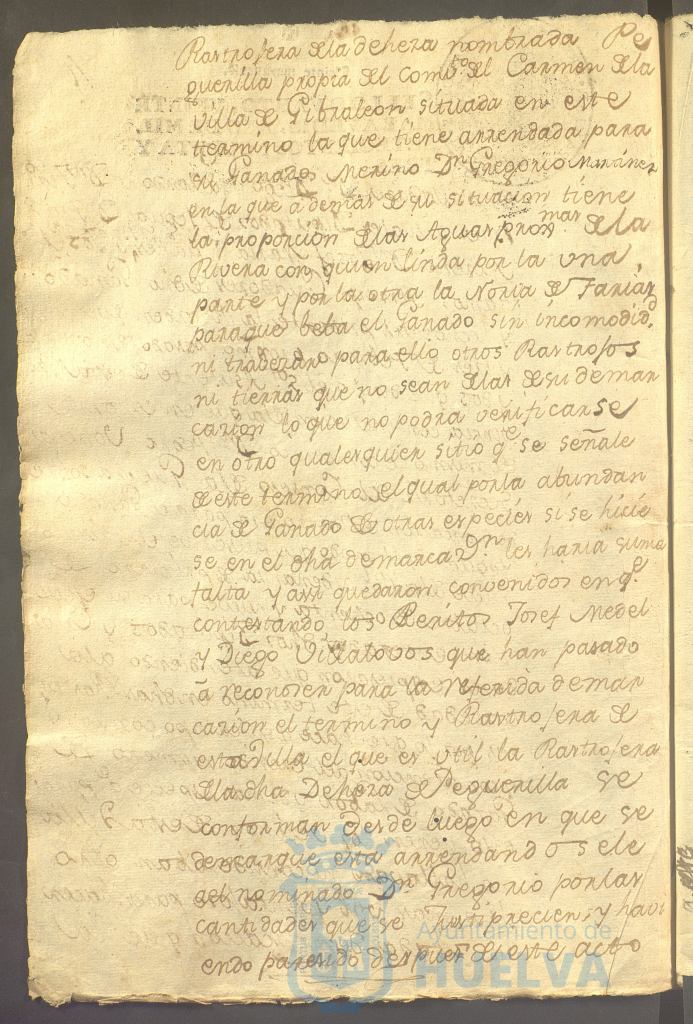 Rastrojera de la deheza nombrada Pe
querilla propia del Combto. del Carmen de la
villa de Gibraleon situada en este
termino la que tiene arrendada para
su Ganado Merino Dn. Gregorio Martinez
en la que ademas de su situacion tiene
la proporcion de las Aguas proxmas. de la
Rivera con quien linda por la una
parte y por la otra la Noria de Farian
para que beba el Ganado sin incomodidd.
ni traberar para ello otros Rastrojos
ni tierras que no sean de las de su demar
cacion lo que no podra verificarse
en otro qualesquier sitio qe. se señale
de este termino el qual por la abundan
cia de Ganado de otras especies si se hicie
se en el dha demarcaon. les haria suma
falta y assi quedaron convenidos en qe.
contestando los Peritos Josef Medel
y Diego Villalovos que han pasado
a reconoser para la referida demar
cacion el termino y Rastrojera de
esta villa el que es util la Rastrojera
de la dha Deheza de Pequerilla se
conforman desde luego en que se
demarque esta arrendandosele
del nominado Dn. Gregorio por las
cantidades que se Justiprecien, y havi
endo parecido despues de este acto
Ayuntamiento de
HUELVA